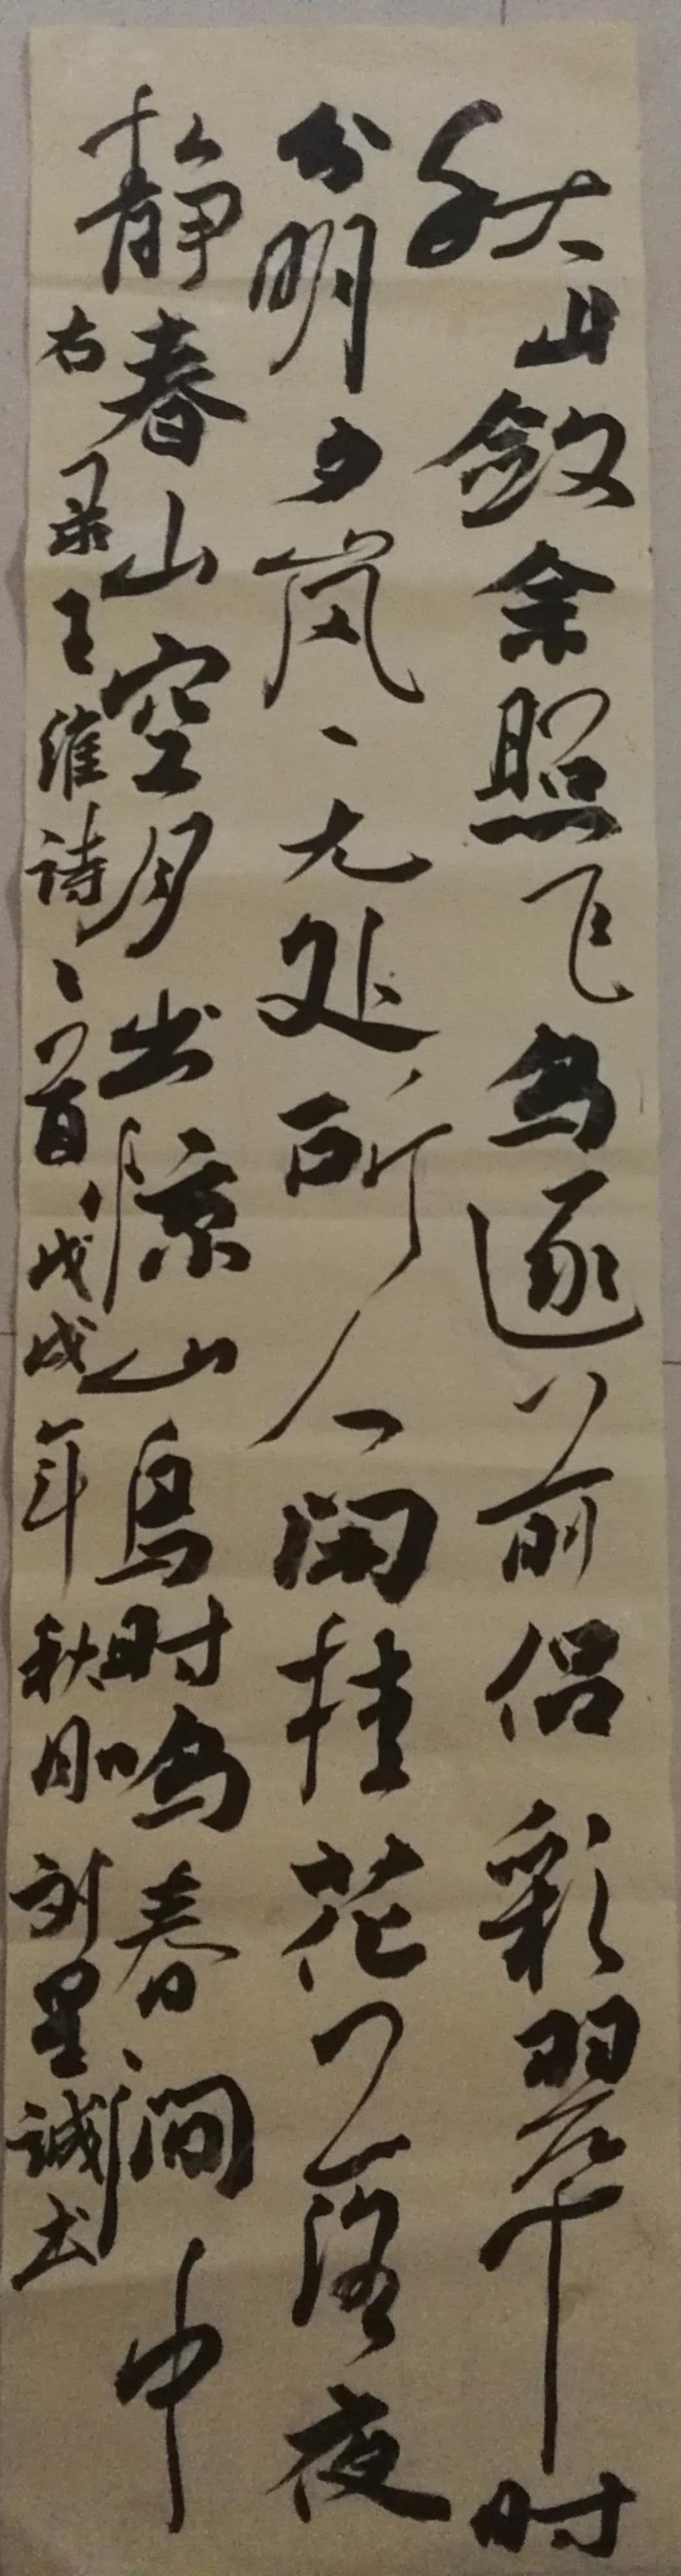 秋山敛余照飞鸟逐前侣彩翠时
分明夕岚无处所人闲桂花落夜
静春山空月出惊山鸟时鸣春涧中
右录王维诗二首戊戌年秋月刘星诚书